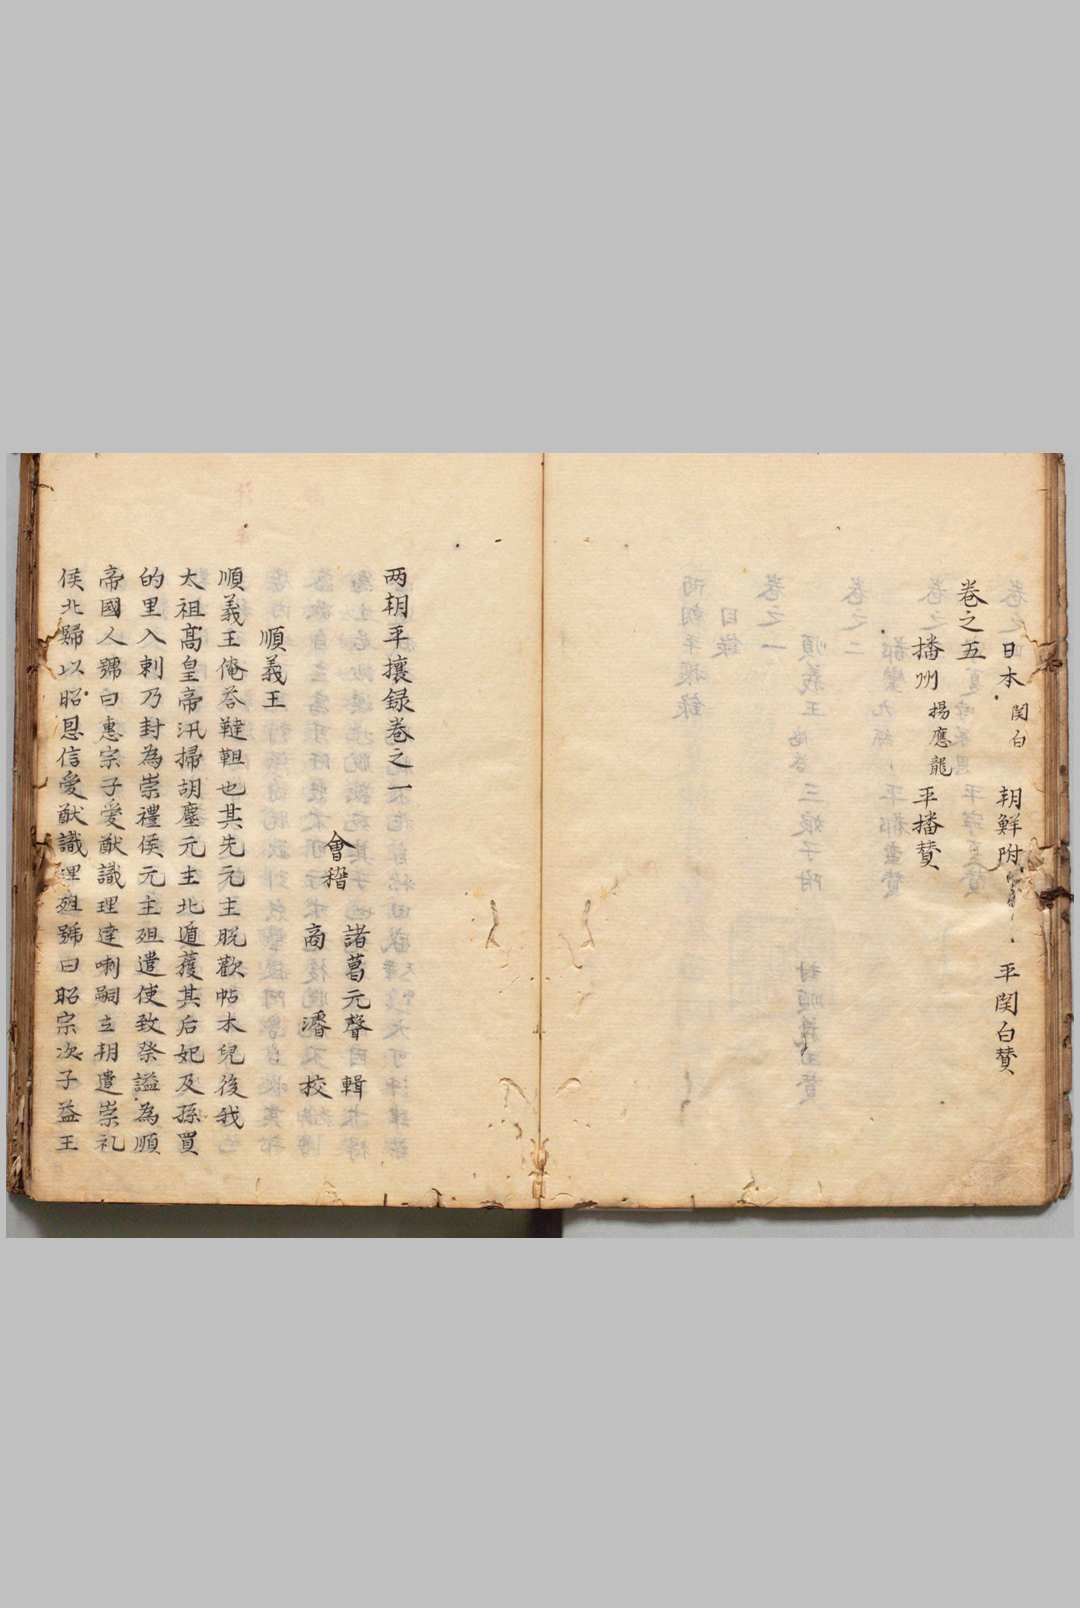 日本 関白 朝鮮附 平関白賛
卷之五
播州 楊應龍 平播賛
两朝平攘録卷之一
會稽 諸葛元聲 輯
商濬 校
順義王
順義王俺荅韃靼也其先元主脱歡帖木兒後我
太祖髙皇帝汛掃胡塵元主北遁蒦其后妃及孫買
的里入剌乃封為崇禮侯元主殂遣使致祭謚為順
帝國人號曰惠宗子爱猷識理達喇嗣立明遣崇礼
侯北歸以昭恩信愛猷識理殂號曰昭宗次子益王